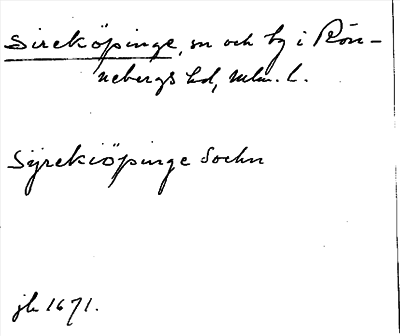 Sireköpinge, sn och by i Rön-
nebergs hd, Mlm. l.
Syrekiöpinge Sochn
jb 1671.